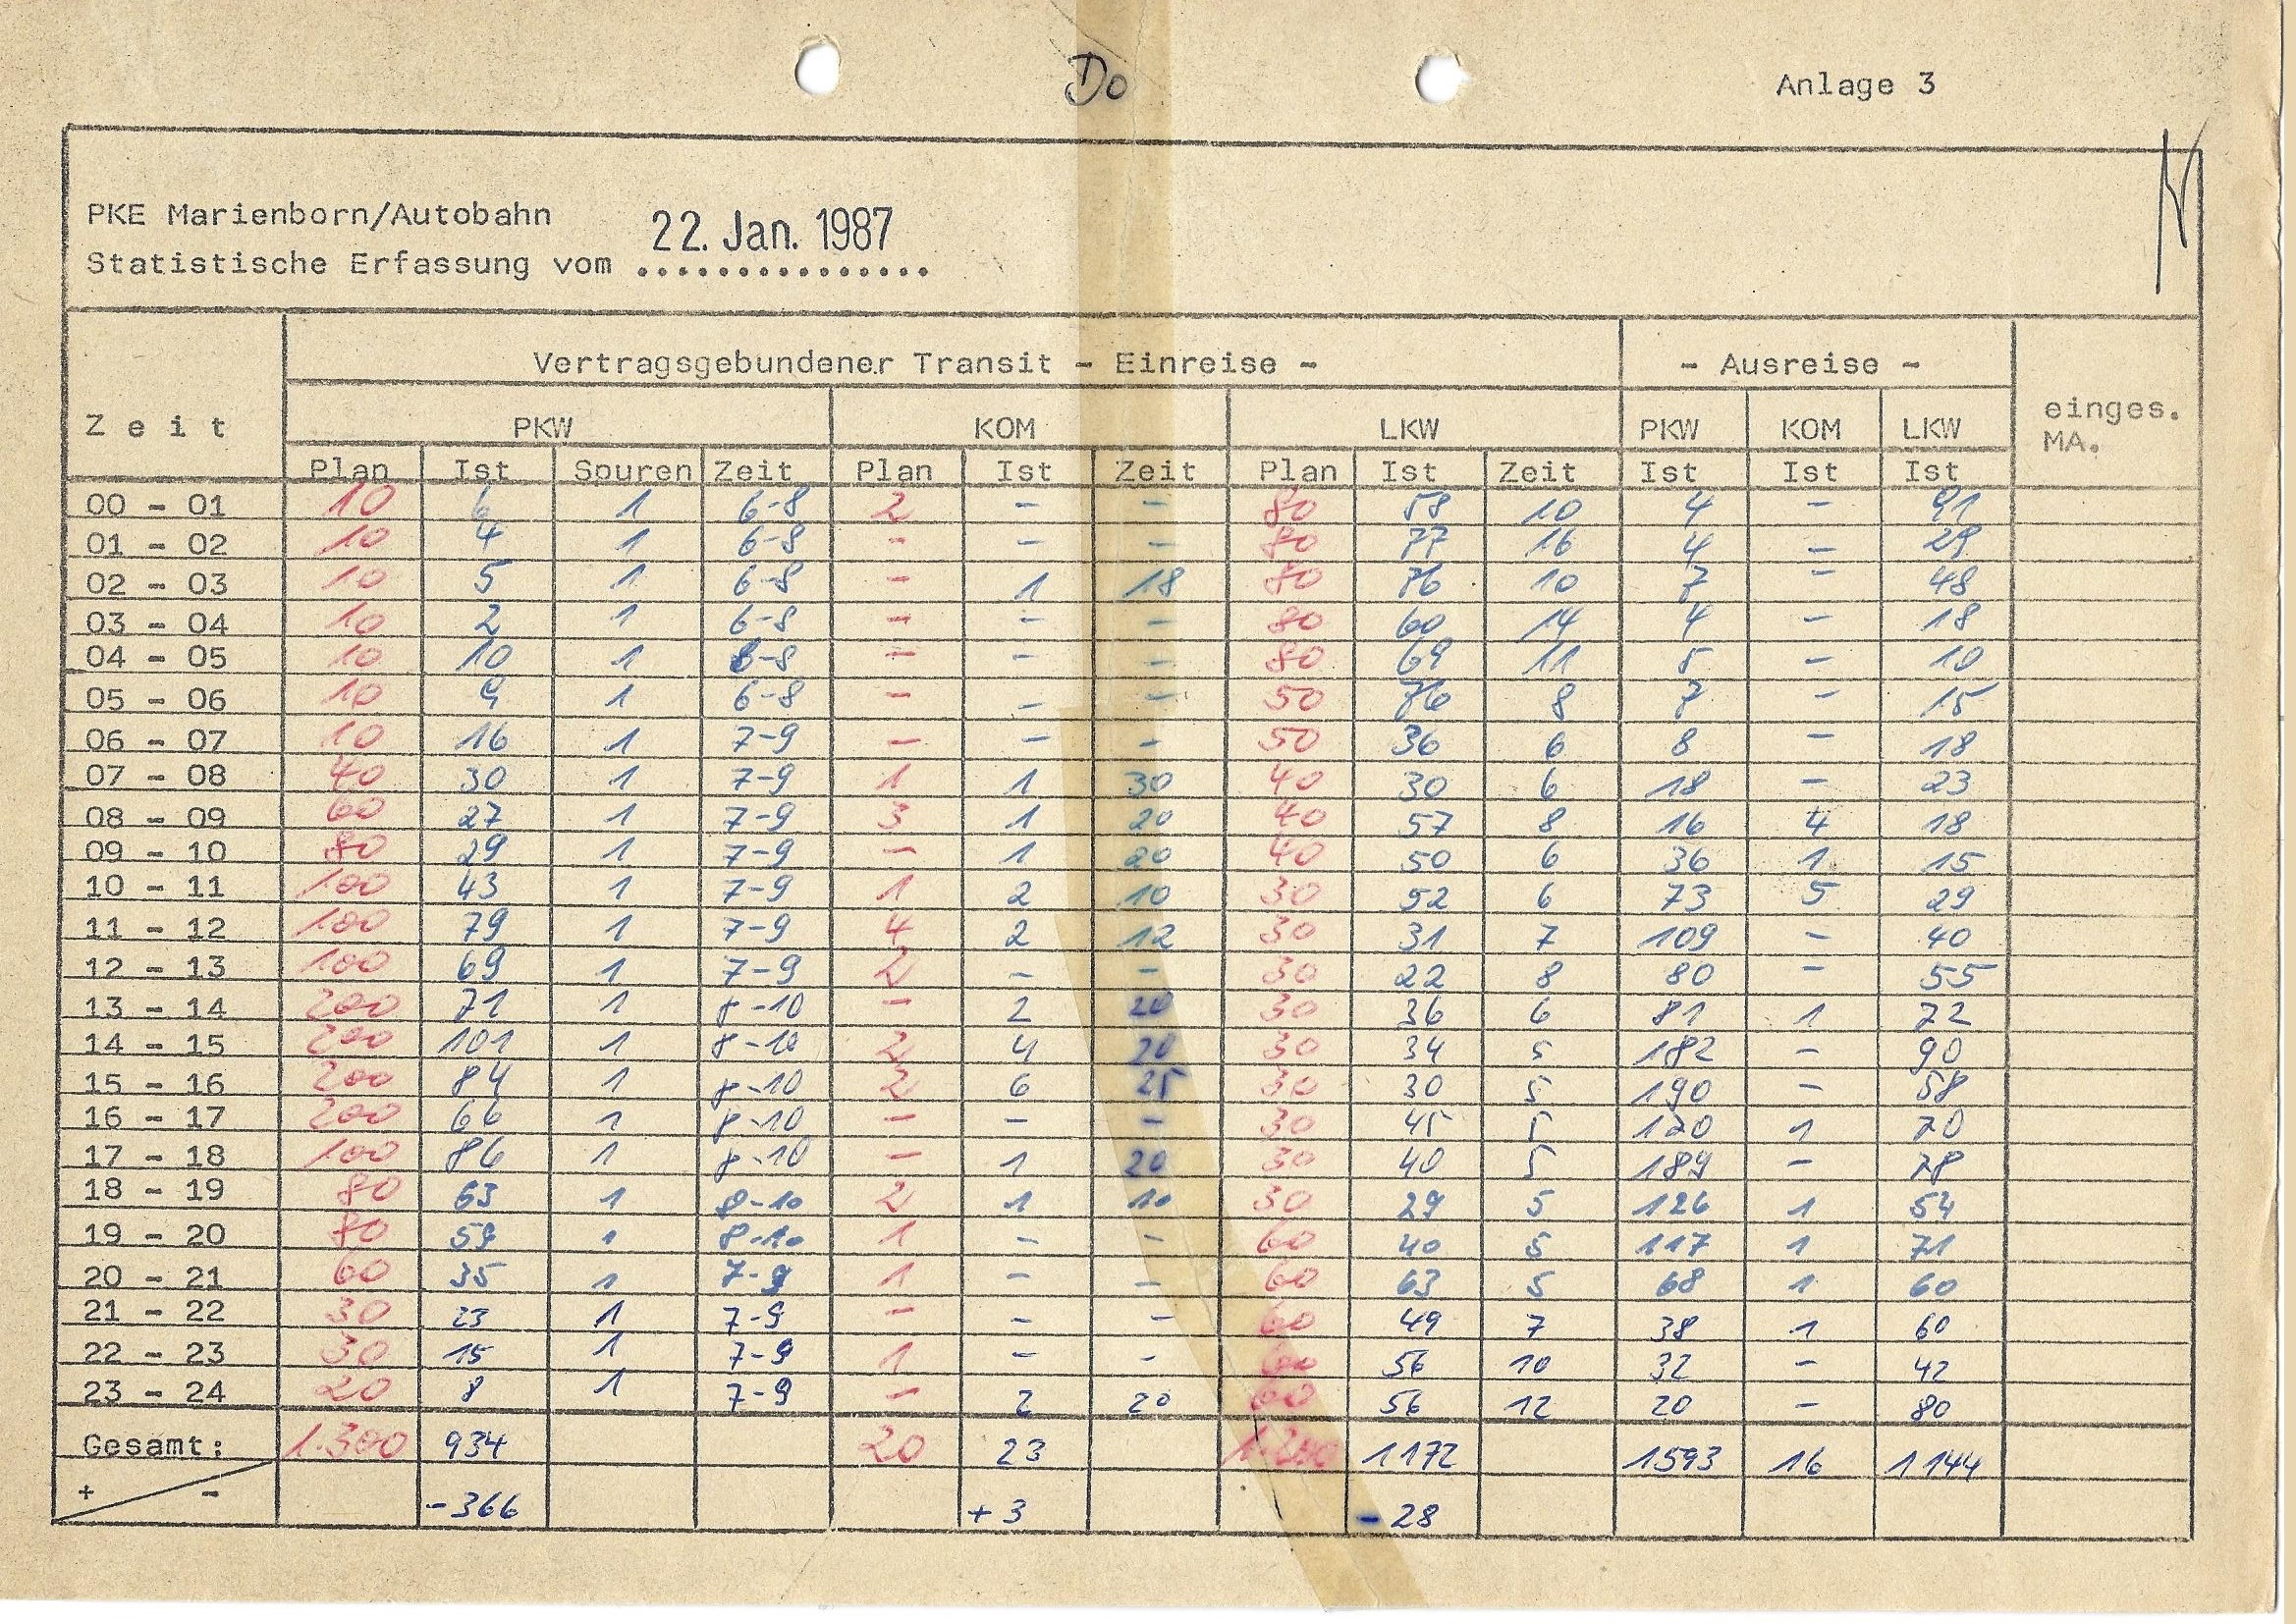 Do
Anlage 3
PKE Marienborn/Autobahn
22. Jan. 1987
Statistische Erfassung vom ...............
Vertragsgebundener Transit - Einreise - - Ausreise -
Zeit PKW KOM LKW PKW KOM LKW einges. MA.
Plan Ist Spuren Zeit Plan Ist Zeit Plan Ist Zeit Ist Ist Ist
00 - 01 10 6 1 6-8 2 - - 80 58 10 4 - 91
01 - 02 10 4 1 6-8 - - - 80 77 16 4 - 29
02 - 03 10 5 1 6-8 - 1 18 80 76 10 7 - 48
03 - 04 10 2 1 6-8 - - - 80 60 14 4 - 18
04 - 05 10 10 1 6-8 - - - 80 69 11 5 - 10
05 - 06 10 9 1 6-8 - - - 50 76 8 7 - 15
06 - 07 10 16 1 7-9 - - - 50 36 6 8 - 18
07 - 08 40 30 1 7-9 1 1 30 40 30 6 18 - 23
08 - 09 60 27 1 7-9 3 1 20 40 57 8 16 4 18
09 - 10 80 29 1 7-9 - 1 20 40 50 6 36 1 15
10 - 11 100 43 1 7-9 1 2 10 30 52 6 73 5 29
11 - 12 100 79 1 7-9 4 2 12 30 31 7 109 - 40
12 - 13 100 69 1 7-9 2 - - 30 22 8 80 - 55
13 - 14 200 71 1 8-10 - 2 20 30 36 6 81 1 72
14 - 15 200 101 1 8-10 2 4 20 30 34 5 182 - 90
15 - 16 200 84 1 8-10 2 6 25 30 30 5 190 - 58
16 - 17 200 66 1 8-10 - - - 30 45 5 120 1 70
17 - 18 100 86 1 8-10 - 1 20 30 40 5 189 - 78
18 - 19 80 63 1 8-10 2 1 10 30 29 5 126 1 54
19 - 20 80 59 1 8-10 1 - - 60 40 5 117 1 71
20 - 21 60 35 1 7-9 1 - - 60 63 5 68 1 60
21 - 22 30 23 1 7-9 - - - 60 49 7 38 1 60
22 - 23 30 15 1 7-9 1 - - 60 56 10 32 - 42
23 - 24 20 8 1 7-9 - 2 20 60 56 12 20 - 80
Gesamt: 1.300 934 20 23 1.200 1172 1593 16 1144
+ - -366 +3 -28